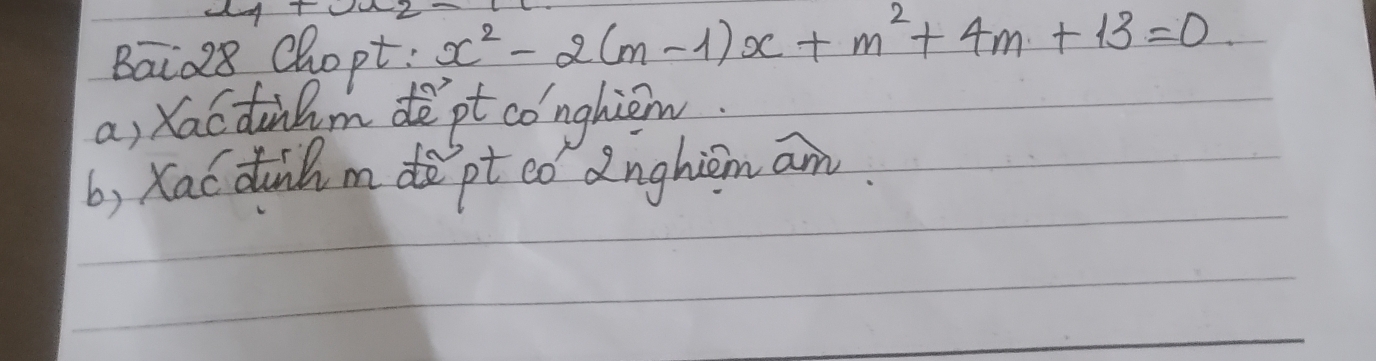 Bài 28 Cho pt: x² - 2(m-1)x + m² + 4m + 13 = 0.
a, Xác định m để pt có nghiệm.
b, Xác định m để pt có 2 nghiệm âm.